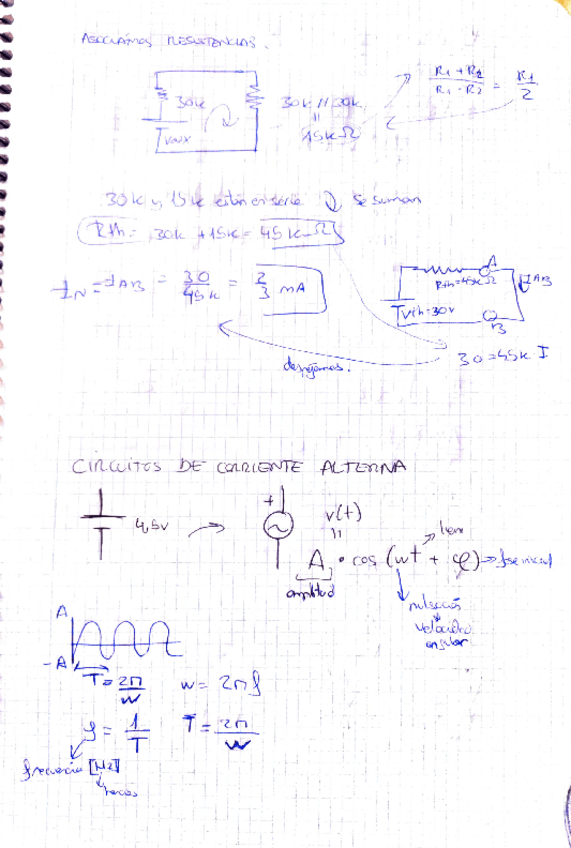 ASOCIAMOS RESISTENCIAS.
30k
Vaux
30k // 30k
=
15kΩ
R1 + R2
R1 · R2
= R1
2
30k y 15k están en serie se suman
Rth = 30k + 15k = 45 kΩ
IN = IAB = 30/45k = 2/3 mA
A
Rth=45kΩ
IAB
Vth=30v
B
30 = 45k I
despejamos.
CIRCUITOS DE CORRIENTE ALTERNA
4,5v
+
v(t)
=
A · cos (wt + φ) → fase inicial
amplitud
pulsación
velocidad
angular
A
-A
T = 2π/w w = 2πf
f = 1/T T = 2π/w
frecuencia [Hz]
hercios